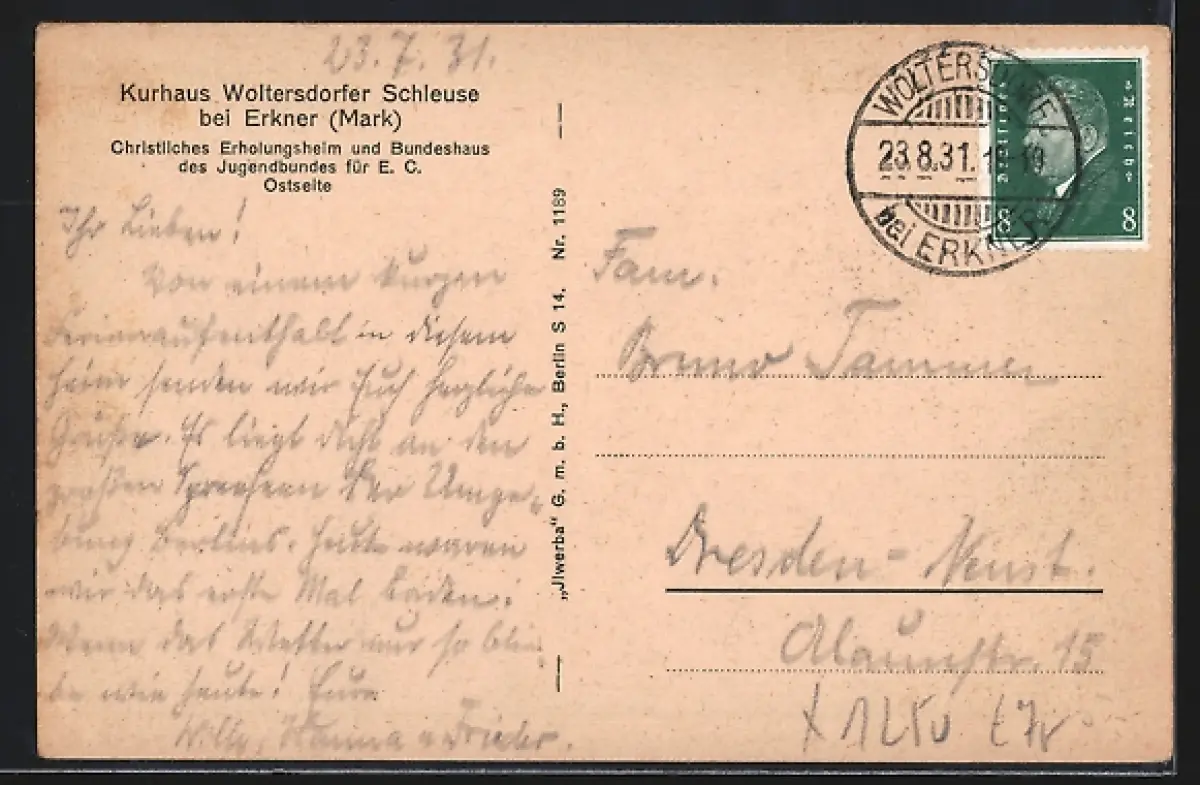 23.7.31.
Kurhaus Woltersdorfer Schleuse
bei Erkner (Mark)
Christliches Erholungsheim und Bundeshaus
des Jugendbundes für E. C.
Ostseite
Ihr Lieben!
Von einem kurzen
Ferienaufenthalt in diesem
Heim senden wir Euch herzliche
Grüße. Es liegt dicht an den
großen Spreeseen der Umge-
bung Berlins. Heute waren
wir das erste Mal baden.
Wenn das Wetter nur so blie-
be wie heute! Eure
Willy, Hanna u. Frieder.
„Jlwerba" G. m. b. H., Berlin S 14. Nr. 1189
WOLTERSDORF
23.8.31.
bei ERKNER
Deutsches Reich
8 8
Fam.
Bruno Tammer
Dresden-Neust.
Alaunstr. 15